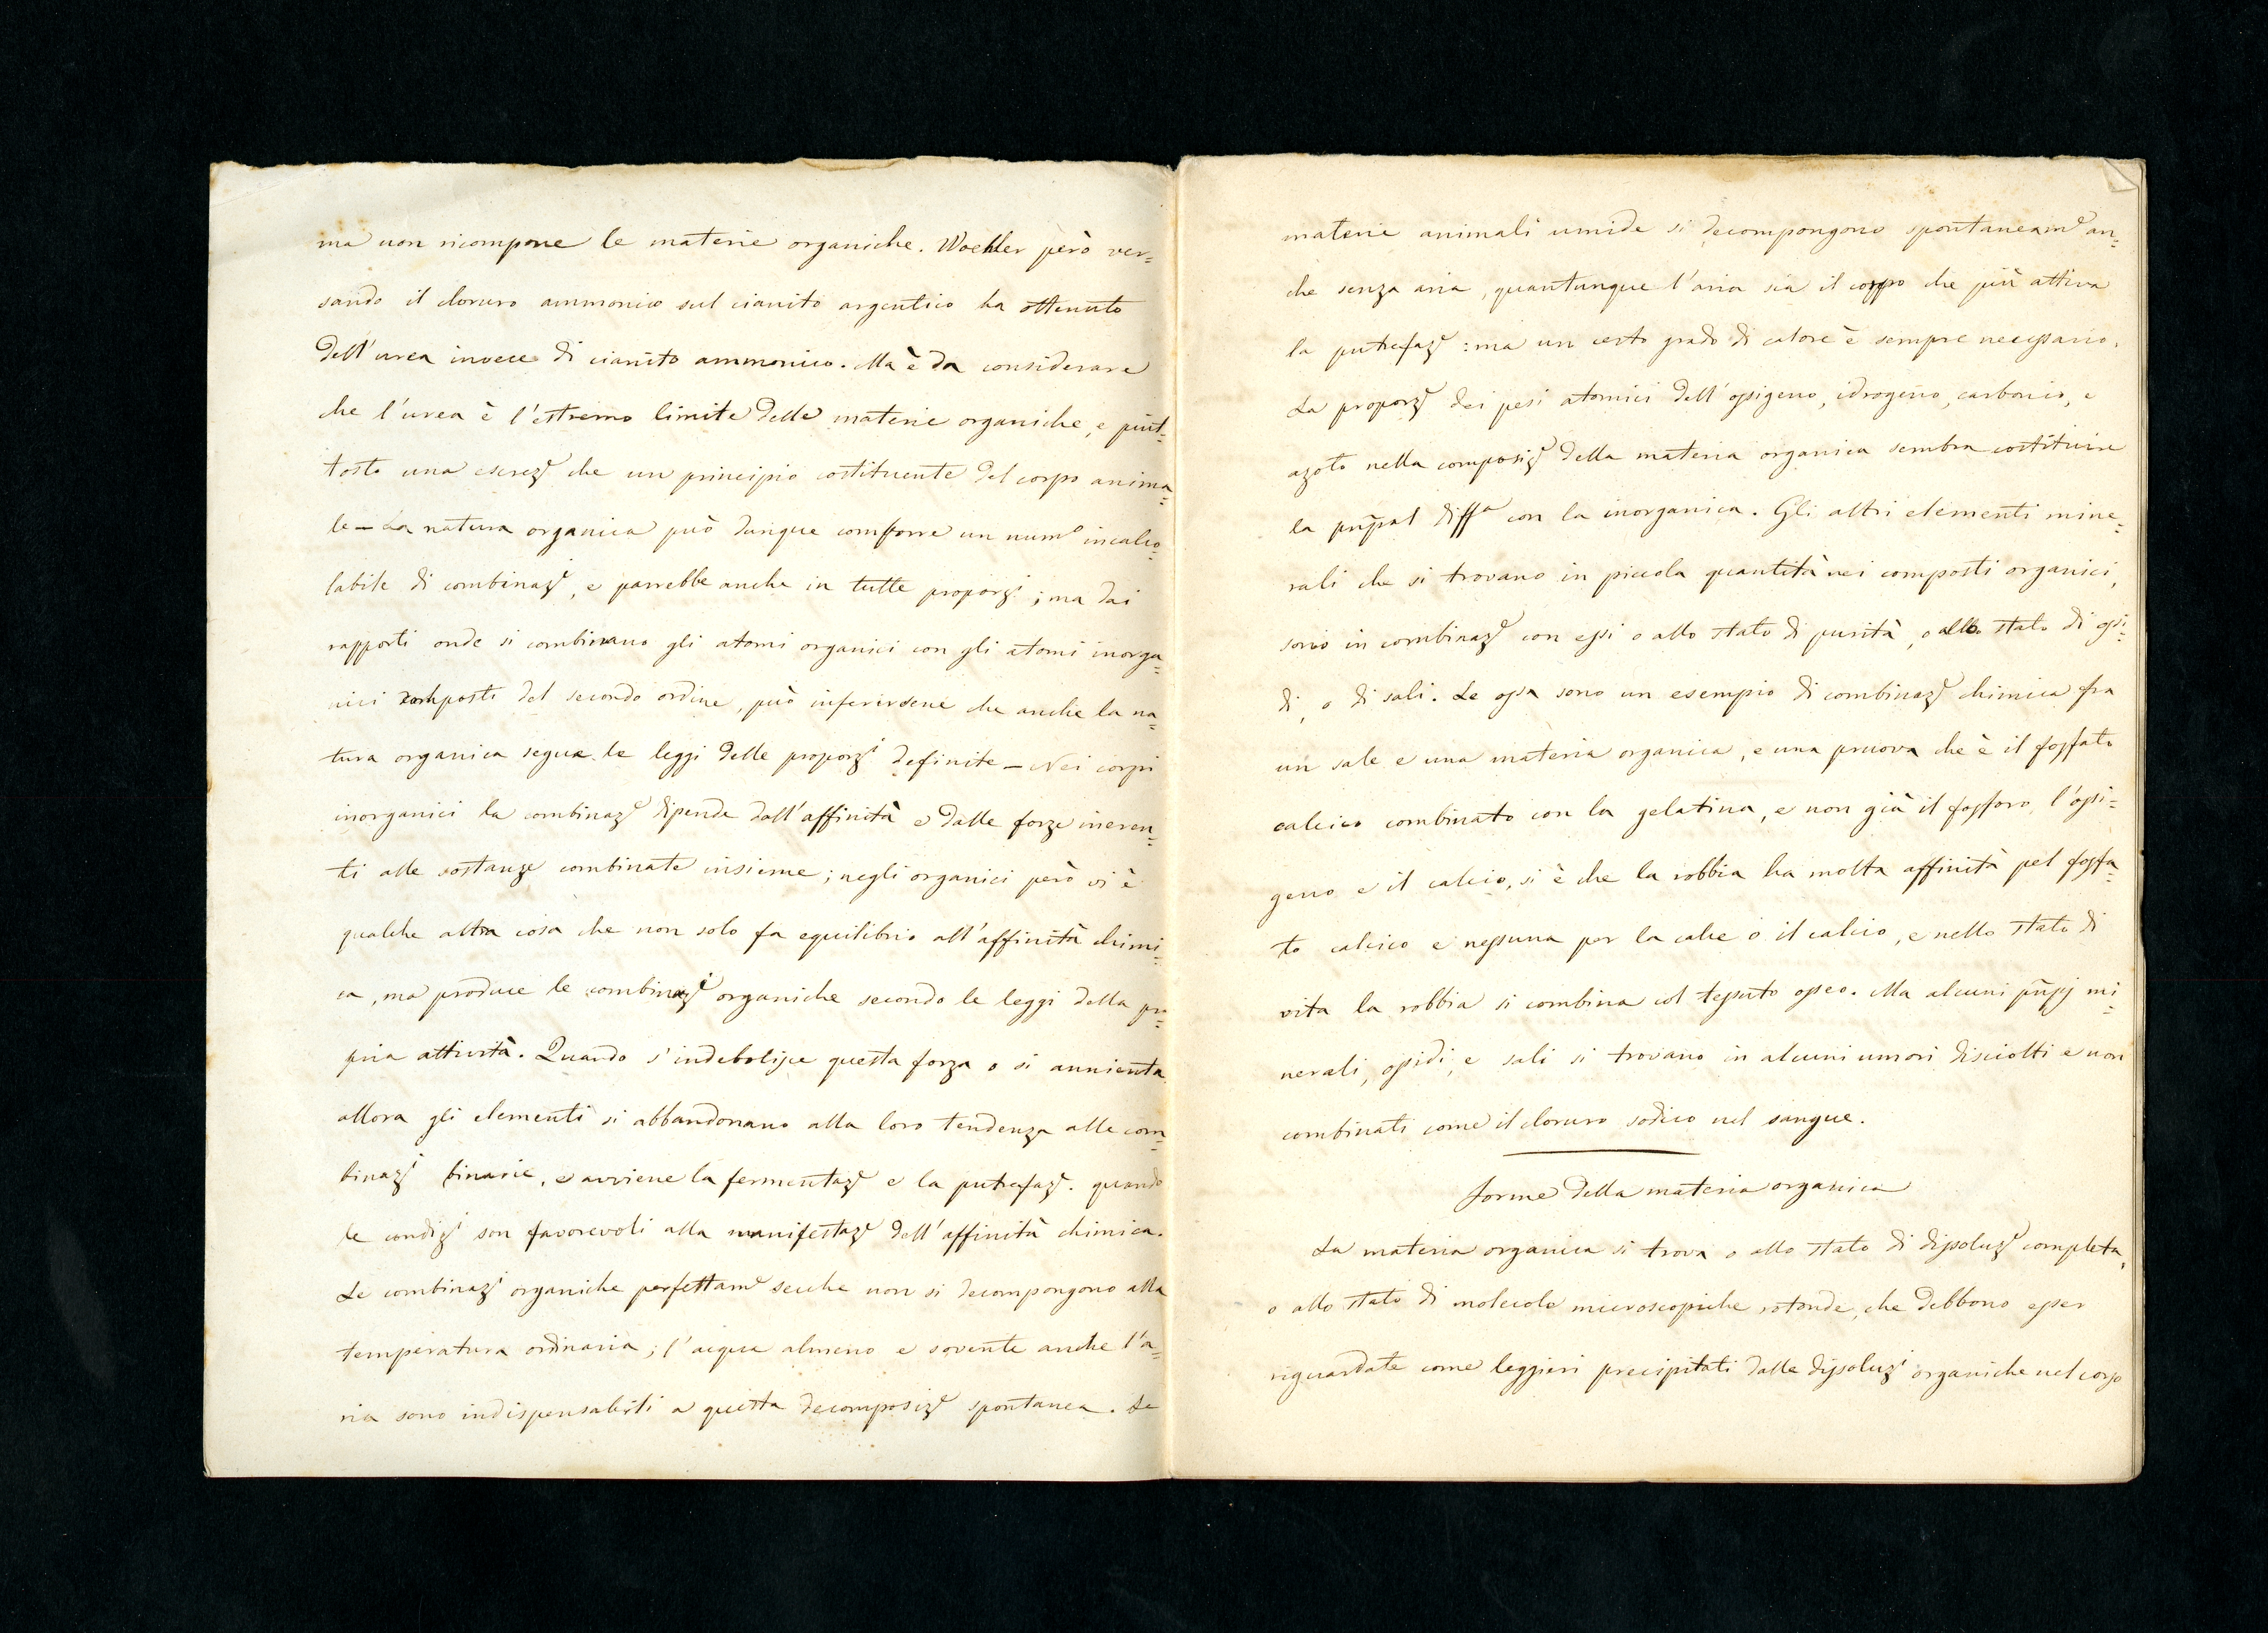 ma non ricompone le materie organiche. Woehler però ver=
sando il cloruro ammonico sul cianito argentico ha ottenuto
dell'urea invece di cianito ammonico. Ma è da considerare
che l'urea è l'estremo limite delle materie organiche, e piut=
tosto una escrez.e che un principio costituente del corpo anima=
le — La natura organica può dunque comporre un num.o incalco=
labile di combinaz.i, e parrebbe anche in tutte proporz.i; ma dai
rapporti onde si combinano gli atomi organici con gli atomi inorga=
nici composti del secondo ordine, può inferirsene che anche la na=
tura organica segua le leggi delle proporz.i definite — Nei corpi
inorganici la combinaz.e dipende dall'affinità e dalle forze ineren=
ti alle sostanze combinate insieme; negli organici però vi è
qualche altra cosa che non solo fa equilibrio all'affinità chimi=
ca, ma produce le combinaz.i organiche secondo le leggi della pro=
pria attività. Quando s'indebolisce questa forza o si annienta
allora gli elementi si abbandonano alla loro tendenza alle com=
binaz.i binarie, e avviene la fermentaz.e e la putrefaz.e. quando
le condiz.i son favorevoli alla manifestaz.e dell'affinità chimica.
Le combinaz.i organiche perfettam.e secche non si decompongono alla
temperatura ordinaria; l'acqua almeno e sovente anche l'a=
ria sono indispensabili a questa decomposiz.e spontanea. Le
materie animali umide si decompongono spontaneam.e an=
che senza aria, quantunque l'aria sia il corpo che più attiva
la putrefaz.e: ma un certo grado di calore è sempre necessario.
La proporz.e dei pesi atomici dell'ossigeno, idrogeno, carbonio, e
azoto nella composiz.e della materia organica sembra costituire
la pñpal diff.a con la inorganica. Gli altri elementi mine=
rali che si trovano in piccola quantità nei composti organici,
sono in combinaz.e con essi o allo stato di purità, o allo stato di ossi=
di, o di sali. Le ossa sono un esempio di combinaz.e chimica fra
un sale e una materia organica, e una pruova che è il fosfato
calcico combinato con la gelatina, e non già il fosforo, l'ossi=
geno e il calcio, si è che la robbia ha molta affinità pel fosfa=
to calcico e nessuna per la calce o il calcio, e nello stato di
vita la robbia si combina col tessuto osseo. Ma alcuni pñpj mi=
nerali, ossidi, e sali si trovano in alcuni umori disciolti e non
combinati come il cloruro sodico nel sangue.
Forme della materia organica
La materia organica si trova o allo stato di dissoluz.e completa,
o allo stato di molecole microscopiche rotonde, che debbono esser
riguardate come leggieri precipitati dalle dissoluz.i organiche nel corpo